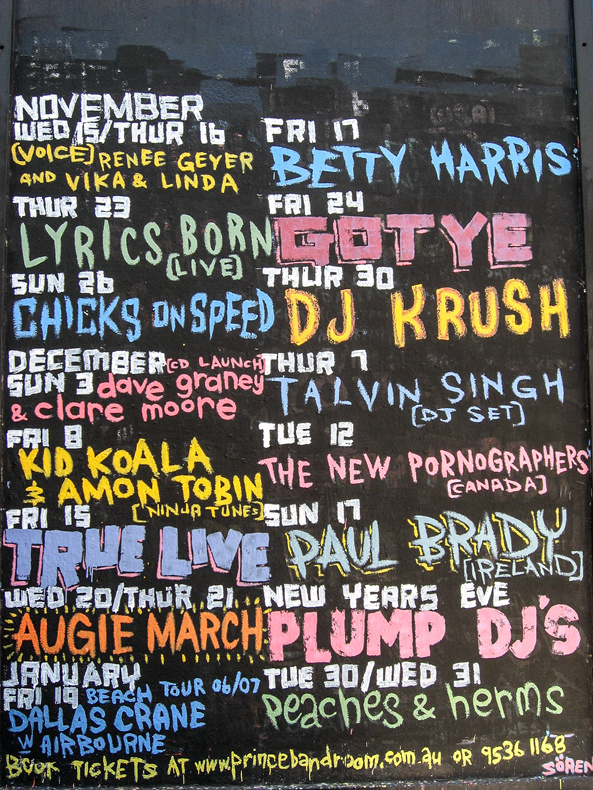 NOVEMBER
WED 15/THUR 16
(VOICE) RENEE GEYER
AND VIKA & LINDA
FRI 17
BETTY HARRIS
THUR 23
LYRICS BORN
(LIVE)
FRI 24
GOTYE
SUN 26
CHICKS ON SPEED
THUR 30
DJ KRUSH
DECEMBER (CD LAUNCH)
SUN 3 dave graney
& clare moore
THUR 7
TALVIN SINGH
(DJ SET)
FRI 8
KID KOALA
& AMON TOBIN
[NINJA TUNES]
TUE 12
THE NEW PORNOGRAPHERS
(CANADA)
FRI 15
TRUE LIVE
SUN 17
PAUL BRADY
[IRELAND]
WED 20/THUR 21
AUGIE MARCH
NEW YEARS EVE
PLUMP DJ'S
JANUARY
FRI 19 BEACH TOUR 06/07
DALLAS CRANE
W AIRBOURNE
TUE 30/WED 31
Peaches & herms
BOOK TICKETS AT www.princebandroom.com.au OR 9536 1168
SÖREN